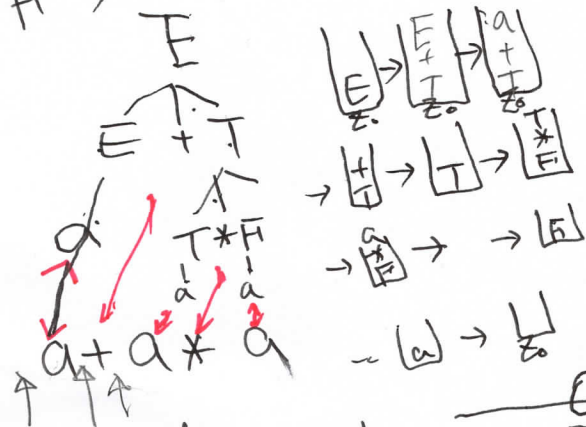 E
E + T
a T * F
a a
a + a * a
E
Z0
→
E
+
T
Z0
→
a
+
T
Z0
→
+
T
→
T
→
T
*
F
→
a
*
F
→
→
F
a
→
Z0